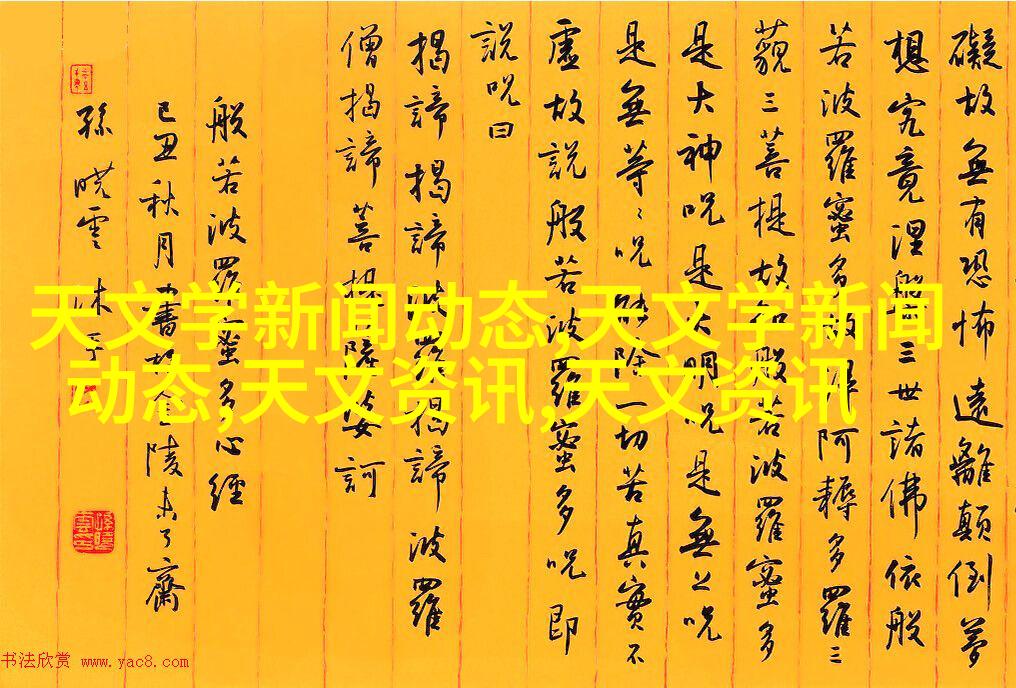 礙故無有恐怖遠離顛倒夢
想究竟涅槃三世諸佛依般
若波羅蜜多故得阿耨多羅三
藐三菩提故知般若波羅蜜多
是大神呪是大明呪是無上呪
是無等々呪能除一切苦真實不
虛故說般若波羅蜜多呪即
說呪曰
揭諦揭諦波羅揭諦波羅
僧揭諦菩提薩婆訶
般若波羅蜜多心經
己丑秋月書於金陵未了齋
孫曉雲沐手
天文学新闻动态,天文学新闻
动态,天文资讯,天文资讯
书法欣赏 www.yac8.com